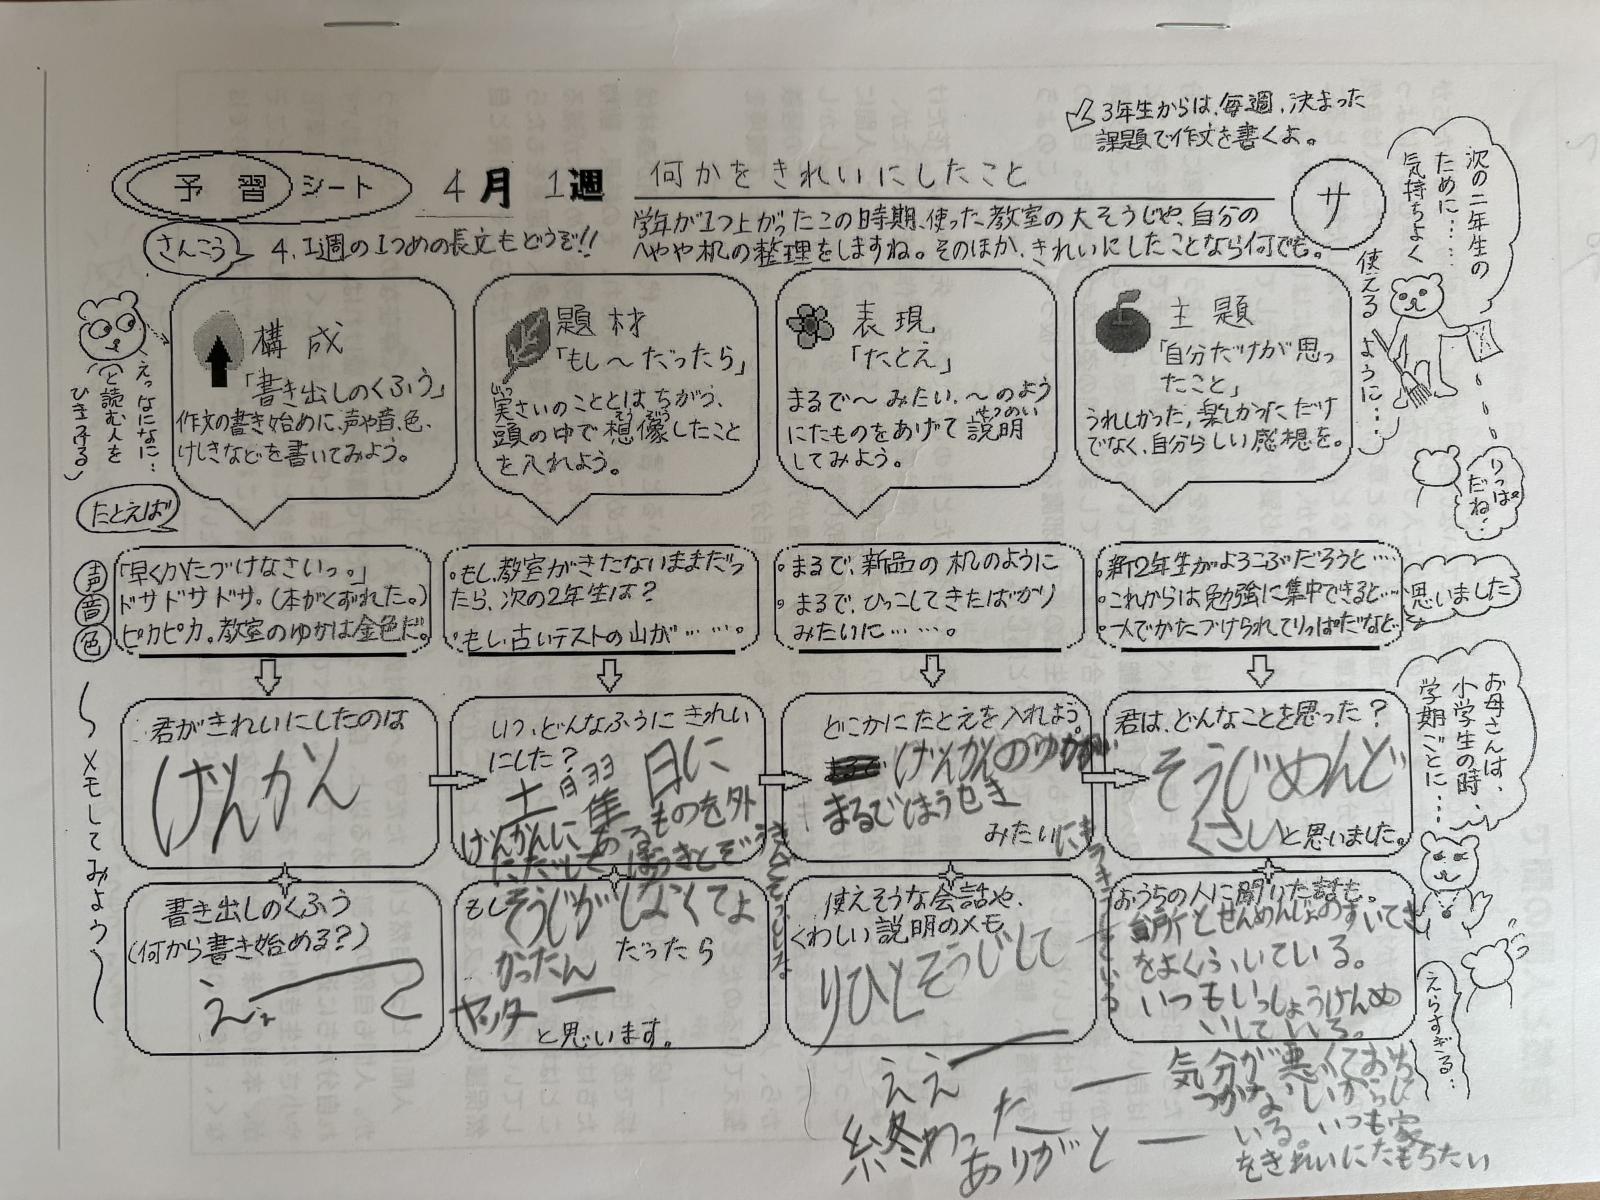 3年生からは、毎週、決まった
課題で作文を書くよ。
予習シート
4月 1週
何かをきれいにしたこと
サ
さんこう
4.1週の1つめの長文もどうぞ!!
学年が1つ上がったこの時期、使った教室の大そうじや、自分の
へやや机の整理をしますね。そのほか、きれいにしたことなら何でも。
次の二年生の
ために……
気持ちよく
使える
ように…
りっぱ
だね。
えっ、なになに…
と読む人を
ひきつける
構成
「書き出しのくふう」
作文の書き始めに、声や音、色、
けしきなどを書いてみよう。
題材
「もし〜だったら」
実さいのこととはちがう、
頭の中で想像したこと
を入れよう。
表現
「たとえ」
まるで〜みたい、〜のよう
にたものをあげて説明
してみよう。
主題
「自分だけが思っ
たこと」
うれしかった、楽しかっただけ
でなく、自分らしい感想を。
たとえば
声
音
色
「早くかたづけなさいっ。」
ドサドサドサ。(本がくずれた。)
ピカピカ。教室のゆかは金色だ。
・もし、教室がきたないままだっ
たら、次の2年生は?
・もし、古いテストの山が……。
・まるで、新品の机のように
・まるで、ひっこしてきたばかり
みたいに……。
・新2年生がよろこぶだろうと…
・これからは勉強に集中できると…
・一人でかたづけられてりっぱだなと…
思いました
〜メモしてみよう〜
君がきれいにしたのは
げんかん
いつ、どんなふうにきれい
にした?
土曜日に
げんかんにあるものを外
にだしてあ
ほうきとぞうきんで
どこかにたとえを入れよう。
げんかんのゆかが
まるでほうせき
みたいに
君は、どんなことを思った?
そうじめんど
くさいと思いました。
お母さんは、
小学生の時、
学期ごとに…
書き出しのくふう
(何から書き始める?)
えぇー
もしそうじがしなくてよ
かったん
だったら
ヤッター
と思います。
使えそうな会話や、
くわしい説明のメモ
りひとそうじして
おうちの人に聞いた話も。
台所とせんめんじょのすいてき
をよくふいている。
いつもいっしょうけんめ
いしている。
えらすぎる…
ええー
終わったー
ありがとー
気分が悪くておち
つかないから
いる。いつも家
をきれいにたもちたい